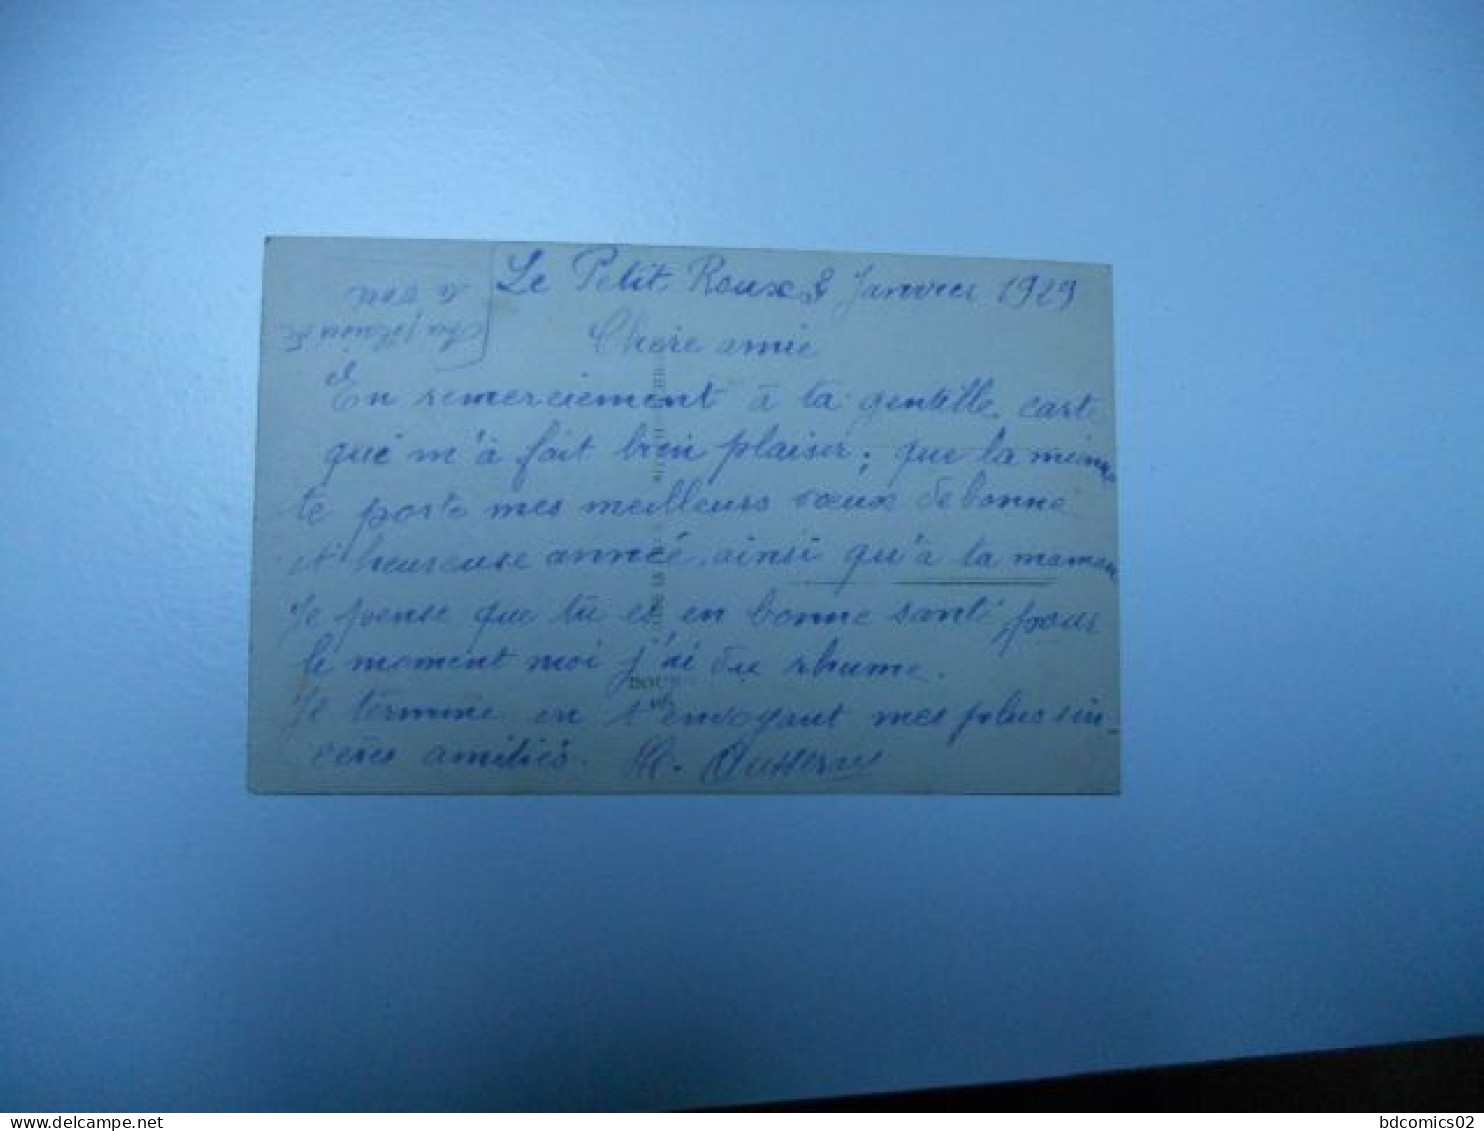 Le Petit Roux 8 Janvier 1929
Chère amie
En remerciement à ta gentille cart
qué m'à fait bien plaisir; que la mienne
te porte mes meilleurs vœux de bonne
et heureuse année, ainsi qu'à ta maman
Je pense que tu es en bonne santé pour
le moment moi j'ai du rhume.
Je termine en t'envoyant mes plus sin-
cères amitiés.
bdcomics02